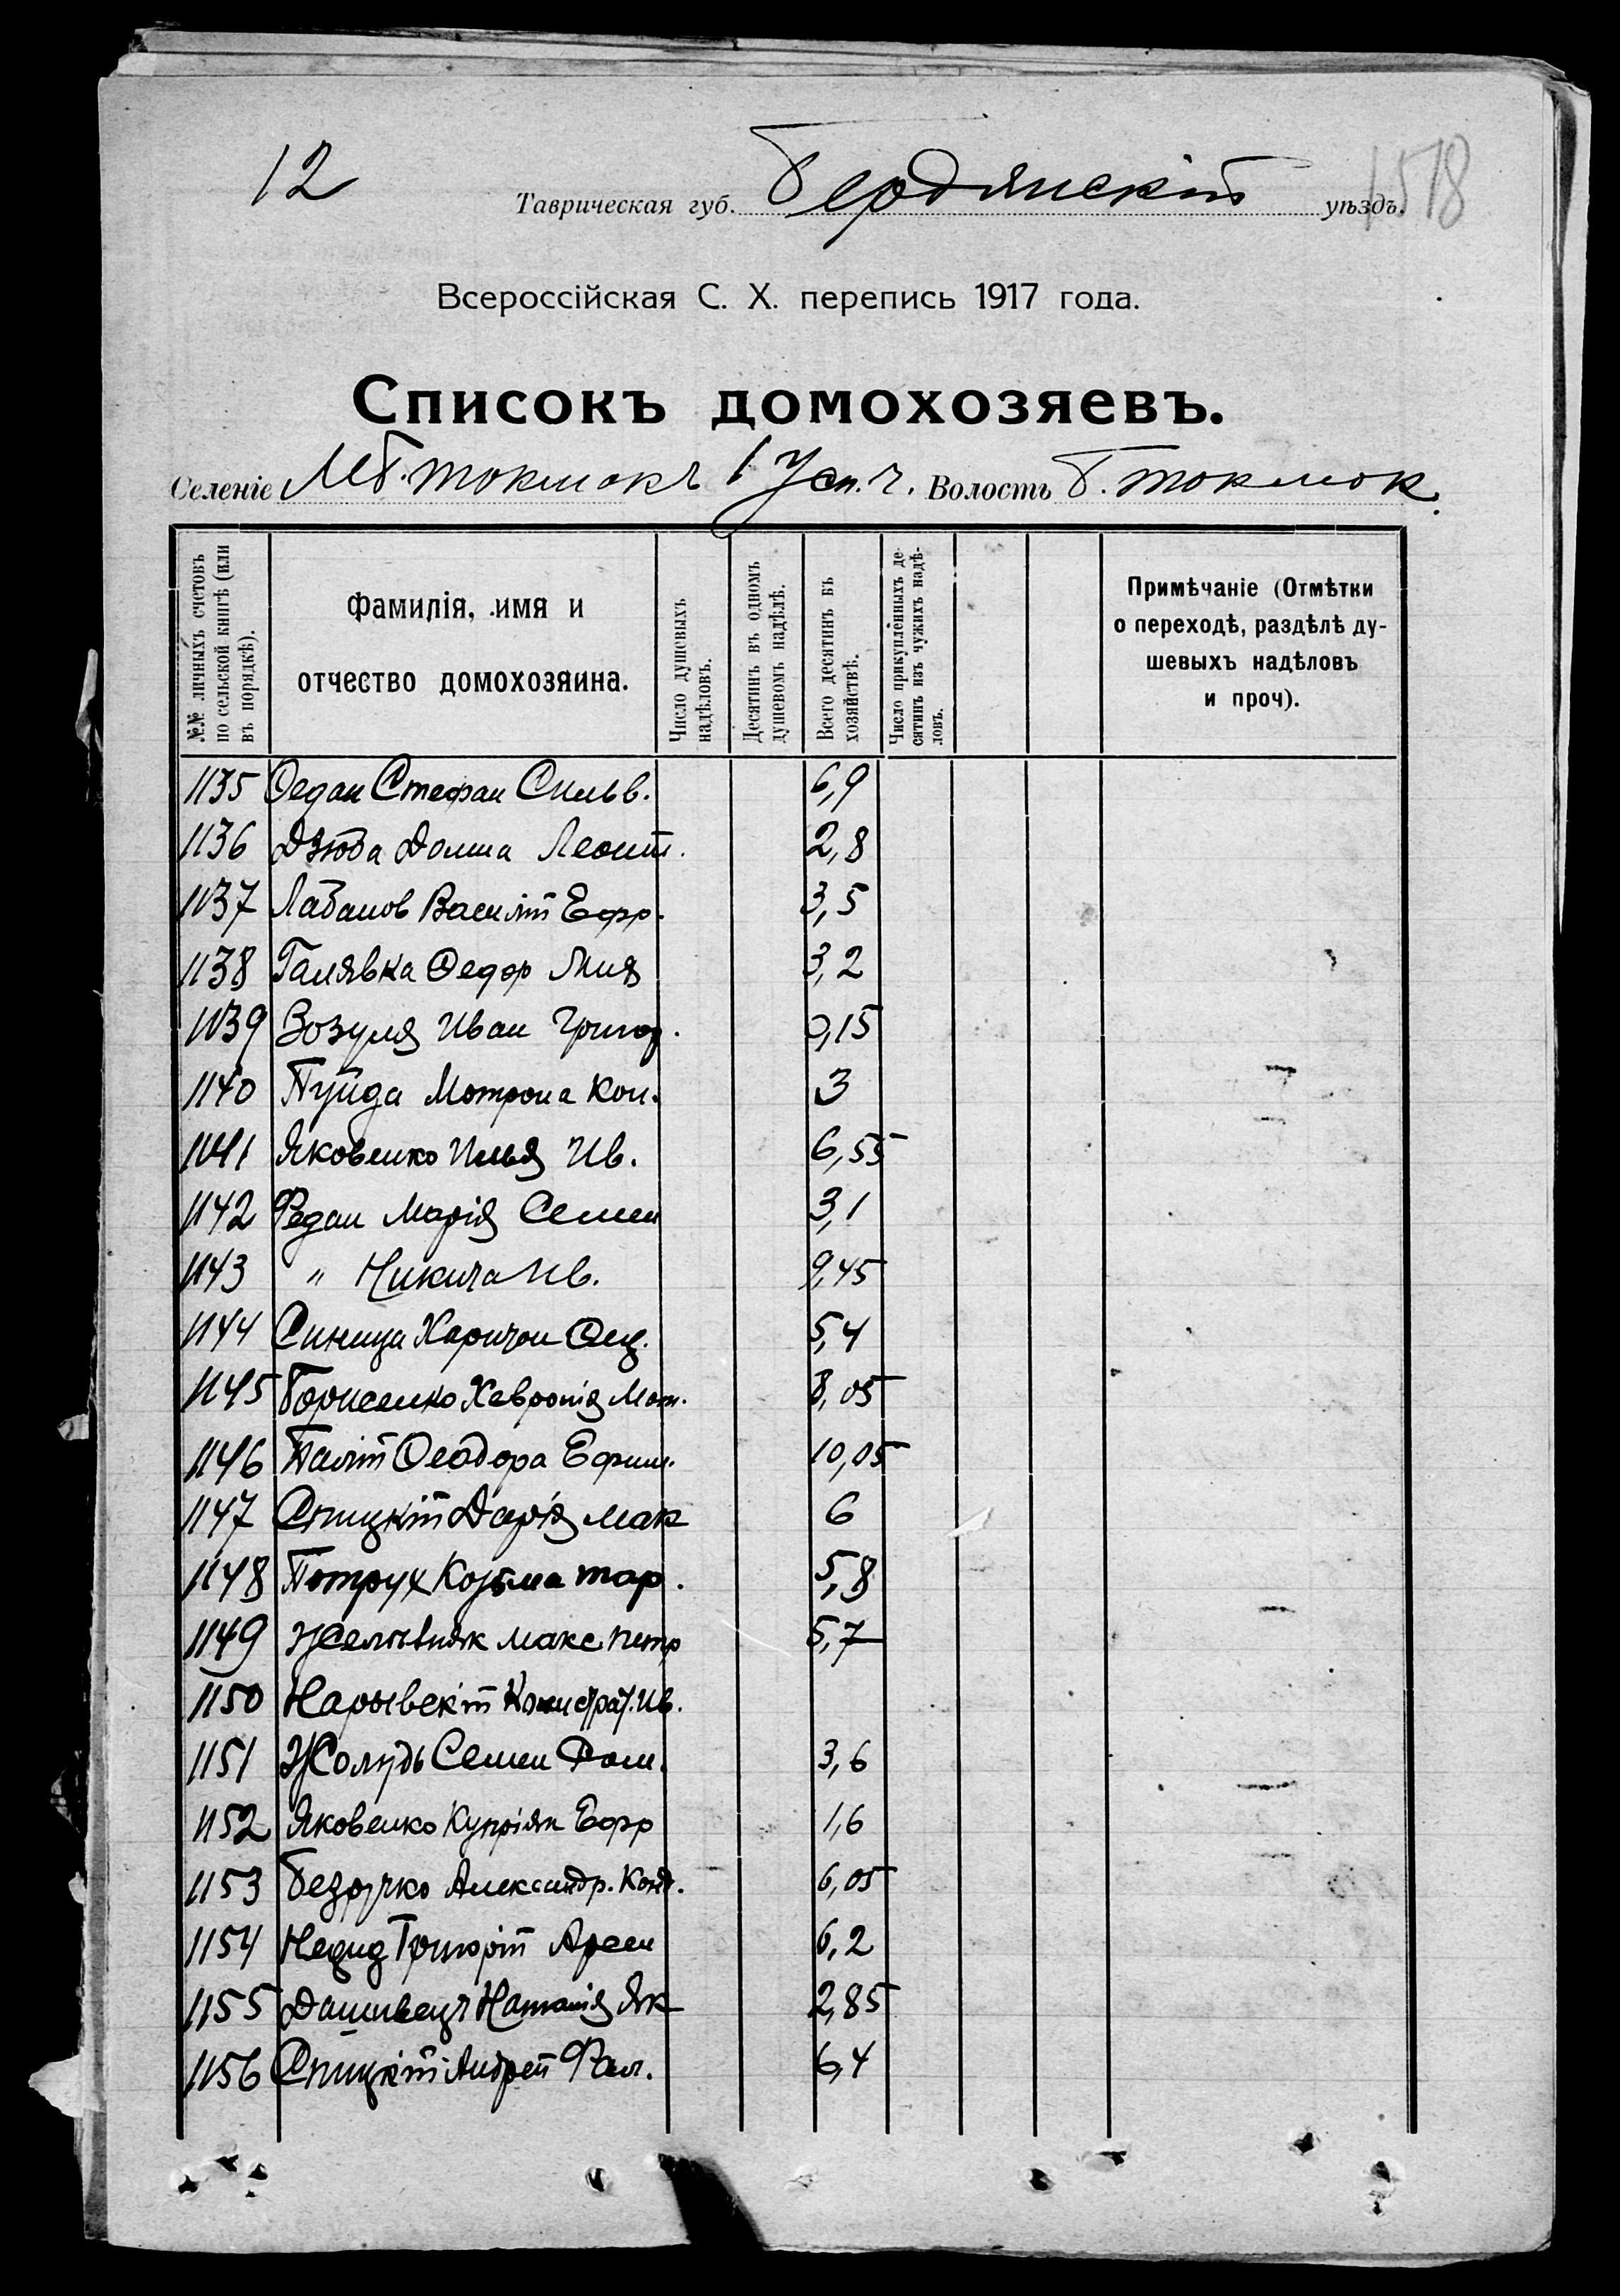 12
Таврическая губ. Бердянскій уѣздъ.
1518
Всероссійская С. Х. перепись 1917 года.
Списокъ домохозяевъ.
Селеніе М Б. Токмокъ 1 Усп. ч. Волость Б. Токмок.
№№ личныхъ счетовъ по сельской книгѣ (или въ порядкѣ).
Фамилія, имя и отчество домохозяина.
Число душевыхъ надѣловъ.
Десятинъ въ одномъ душевомъ надѣлѣ.
Всего десятинъ въ хозяйствѣ.
Число прикупленныхъ десятинъ изъ чужихъ надѣловъ.
Примѣчаніе (Отмѣтки о переходѣ, раздѣлѣ душевыхъ надѣловъ и проч).
1135 Ѳедан Стефан Сильв. 6,9
1136 Дзюба Домна Леонт. 2,8
1137 Лабанов Василій Ефр. 3,5
1138 Галявка Ѳедор 3,2
1139 Зозуля Иван Григор. 0,15
1140 Пуйда Мотрона Кон. 3
1141 Яковенко Илья Ив. 6,55
1142 Федан Марія Семен 3,1
1143 " Никита Ив. 9,45
1144 Синица Харитон 5,4
1145 Борисенко Хевронія Мат. 8,05
1146 Палій Ѳеодора Ефим. 10,05
1147 Спицкій Дарія Мак 6
1148 Потрух Козьма Тар. 5,8
1149 Макс Петр 5,7
1150 Ив.
1151 Жолудь Семен Ром. 3,6
1152 Яковенко Купріян Ефр 1,6
1153 Безручко Александр. Конд. 6,05
1154 Григорій Арсен 6,2
1155 Дашивецъ Наталія Як 2,85
1156 Спицкій Андрей 6,4